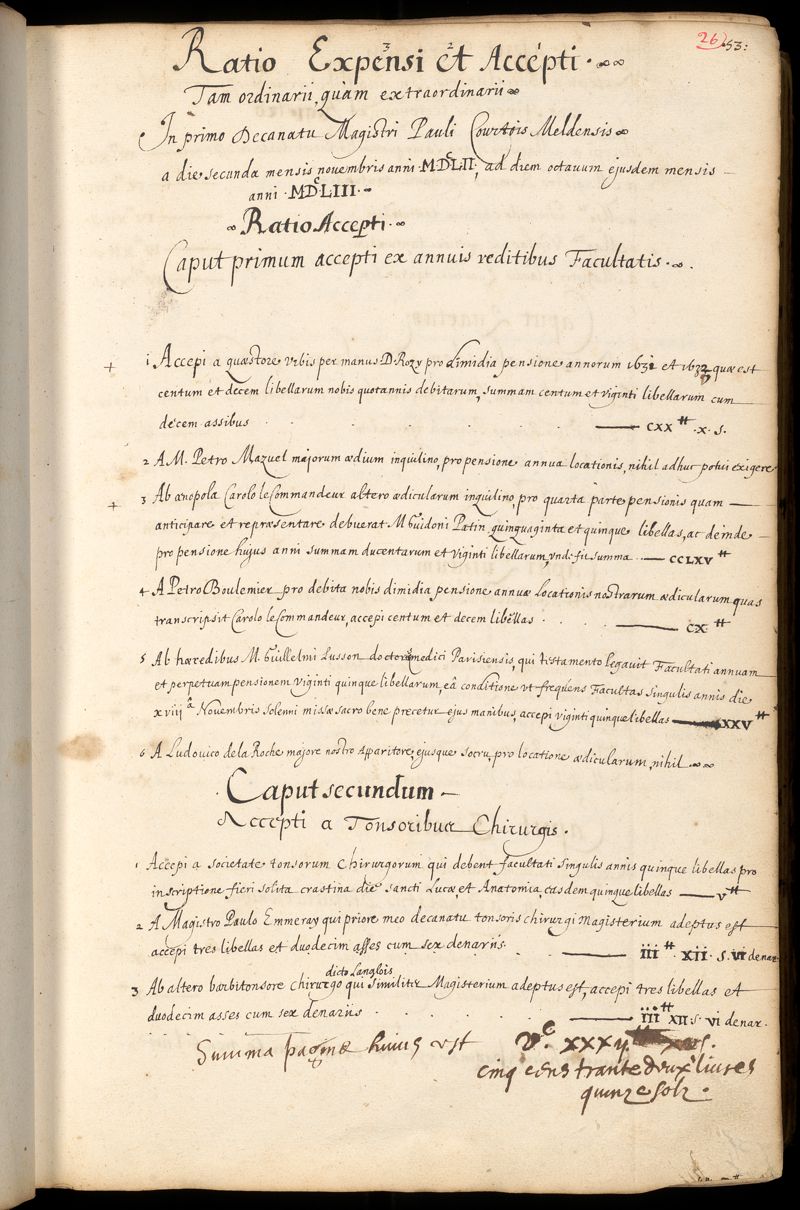 26) 53:
Ratio Expensi et Accepti.
3 2
Tam ordinarii, quàm extraordinarii
In primo Decanatu Magistri Pauli Courtois Meldensis
a die secunda mensis novembris anni MDCLII, ad diem octauum ejusdem mensis
anni MDCLIII.
Ratio Accepti.
Caput primum accepti ex annuis reditibus Facultatis.
+ 1 Accepi a quæstore vrbis per manus D. Rozy pro dimidia pensione annorum 1632 et 1633 quæ est
centum et decem libellarum nobis quotannis debitarum, summam centum et viginti libellarum cum
decem assibus CXX ₶ .X. s.
2 A M. Petro Mazuel majorum ædium inquilino, pro pensione annua locationis, nihil adhuc potui exigere
+ 3 Ab œnopola Carolo le Commandeur altero ædicularum inquilino, pro quarta parte pensionis quam
anticipare et repræsentare debuerat M Guidoni Patin quinquaginta et quinque libellas, ac deinde
pro pensione hujus anni summam ducentarum et viginti libellarum, vnde fit summa CCLXV ₶
4 A Petro Boulemier pro debita nobis dimidia pensione annuæ locationis nostrarum ædicularum quas
transcripsit Carolo le Commandeur, accepi centum et decem libellas CX ₶
5 Ab hæredibus M. Guillelmi Lusson doctoris medici Parisiensis, qui testamento legavit Facultati annuam
et perpetuam pensionem viginti quinque libellarum, eâ conditione vt frequens Facultas singulis annis die
xviiiâ Novembris solemni missæ sacro bene precetur ejus manibus, accepi viginti quinque libellas XXV ₶
6 A Ludovico de la Roche majore nostro Apparitore, ejusque socru, pro locatione ædicularum, nihil
Caput secundum
Accepti a Tonsoribus Chirurgis.
1 Accepi a societate tonsorum chirurgorum qui debent facultati singulis annis quinque libellas pro
inscriptione fieri solita crastina die sancti Lucæ, et Anatomia, easdem quinque libellas V ₶
2 A Magistro Paulo Emmeray qui priore meo decanatu tonsoris chirurgi magisterium adeptus est
accepi tres libellas et duodecim asses cum sex denariis. III ₶ .XII. s. VI denar.
dicto Langlois
3 Ab altero barbitonsore chirurgo qui similiter Magisterium adeptus est, accepi tres libellas et
duodecim asses cum sex denariis III ₶ XII. s. VI denar.
Summa paginæ huius est vc. xxxij
cinq cens trante deux liures
quinze solz.